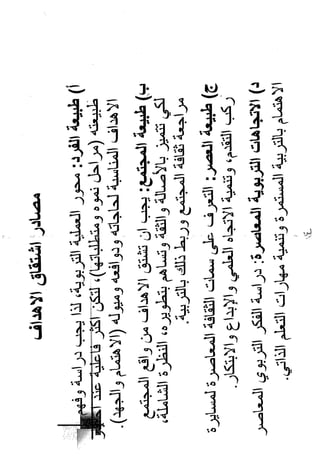 مصادر اشتقاق الأهداف
أ) طبيعة الفرد: محور العملية التربوية، لذا يجب دراسة وفهم
طبيعته (مراحل نموه ومتطلباتها)، لتكن أكثر فاعلية عند
الأهداف المناسبة لحاجاته ودوافعه وميوله (الاهتمام والجهد).
ب) طبيعة المجتمع: يجب ان تشتق الأهداف من واقع المجتمع
لكي تتميز بالأصالة والثقة وتساهم بتطويره، النظرة الشاملة،
مراجعة ثقافة المجتمع وربط ذلك بالتربية.
ج) طبيعة العصر: التعرف على سمات الثقافة المعاصرة لمسايرة
ركب التقدم، وتنمية الاتجاه العلمي والإبداع والابتكار.
د) الاتجاهات التربوية المعاصرة: دراسة الفكر التربوي المعاصر
الاهتمام بالتربية المستمرة وتنمية مهارات التعلم الذاتي.